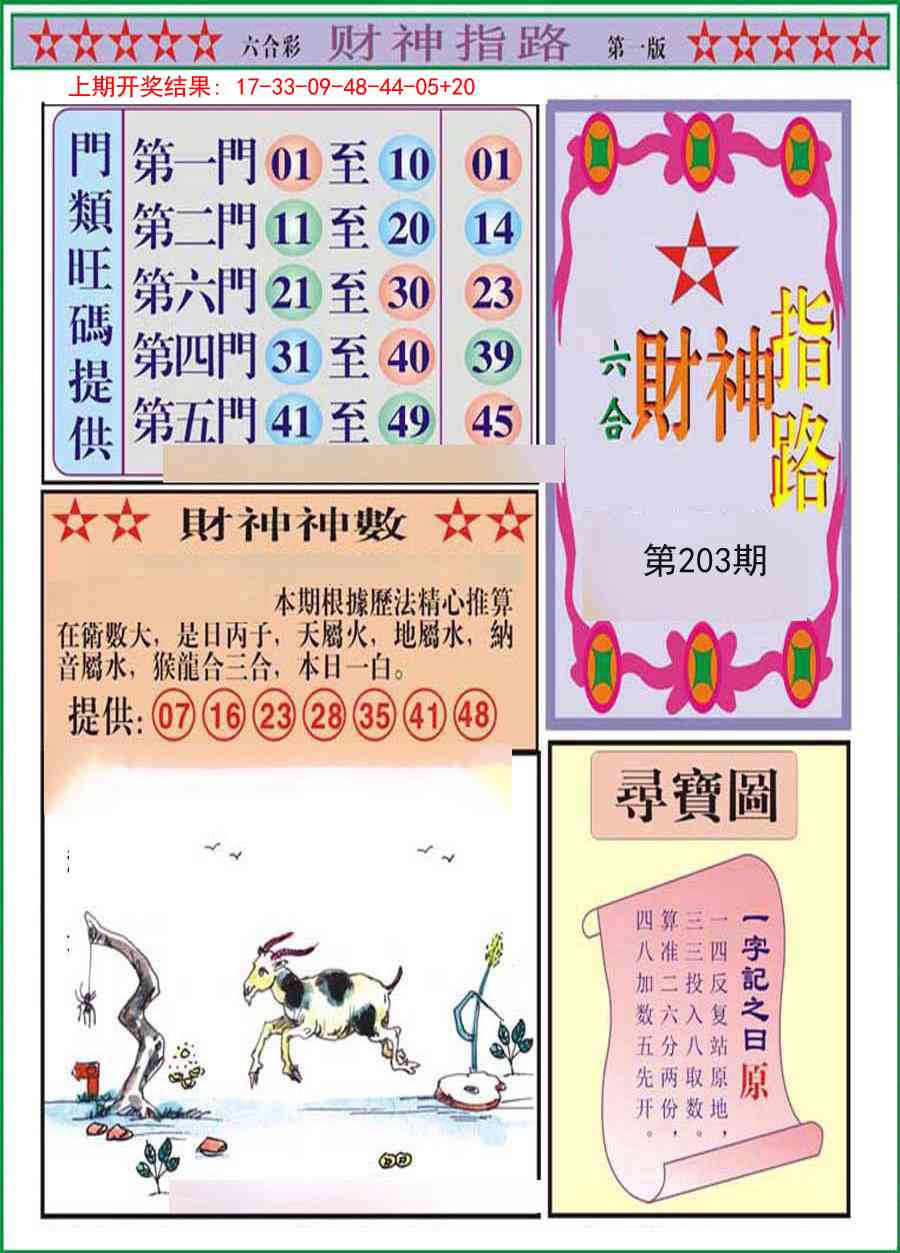 六合彩 财神指路 第一版
上期开奖结果: 17-33-09-48-44-05+20
門類旺碼提供
第一門 01 至 10 01
第二門 11 至 20 14
第六門 21 至 30 23
第四門 31 至 40 39
第五門 41 至 49 45
六合
財神
指路
第203期
財神神數
本期根據歷法精心推算
在術數大，是日丙子，天屬火，地屬水，納
音屬水，猴龍合三合，本日一白。
提供: 07 16 23 28 35 41 48
尋寶圖
一字記之日原
一四反复站原地，
三三投入八取数。
算准二六分两份，
四八加数五先开。